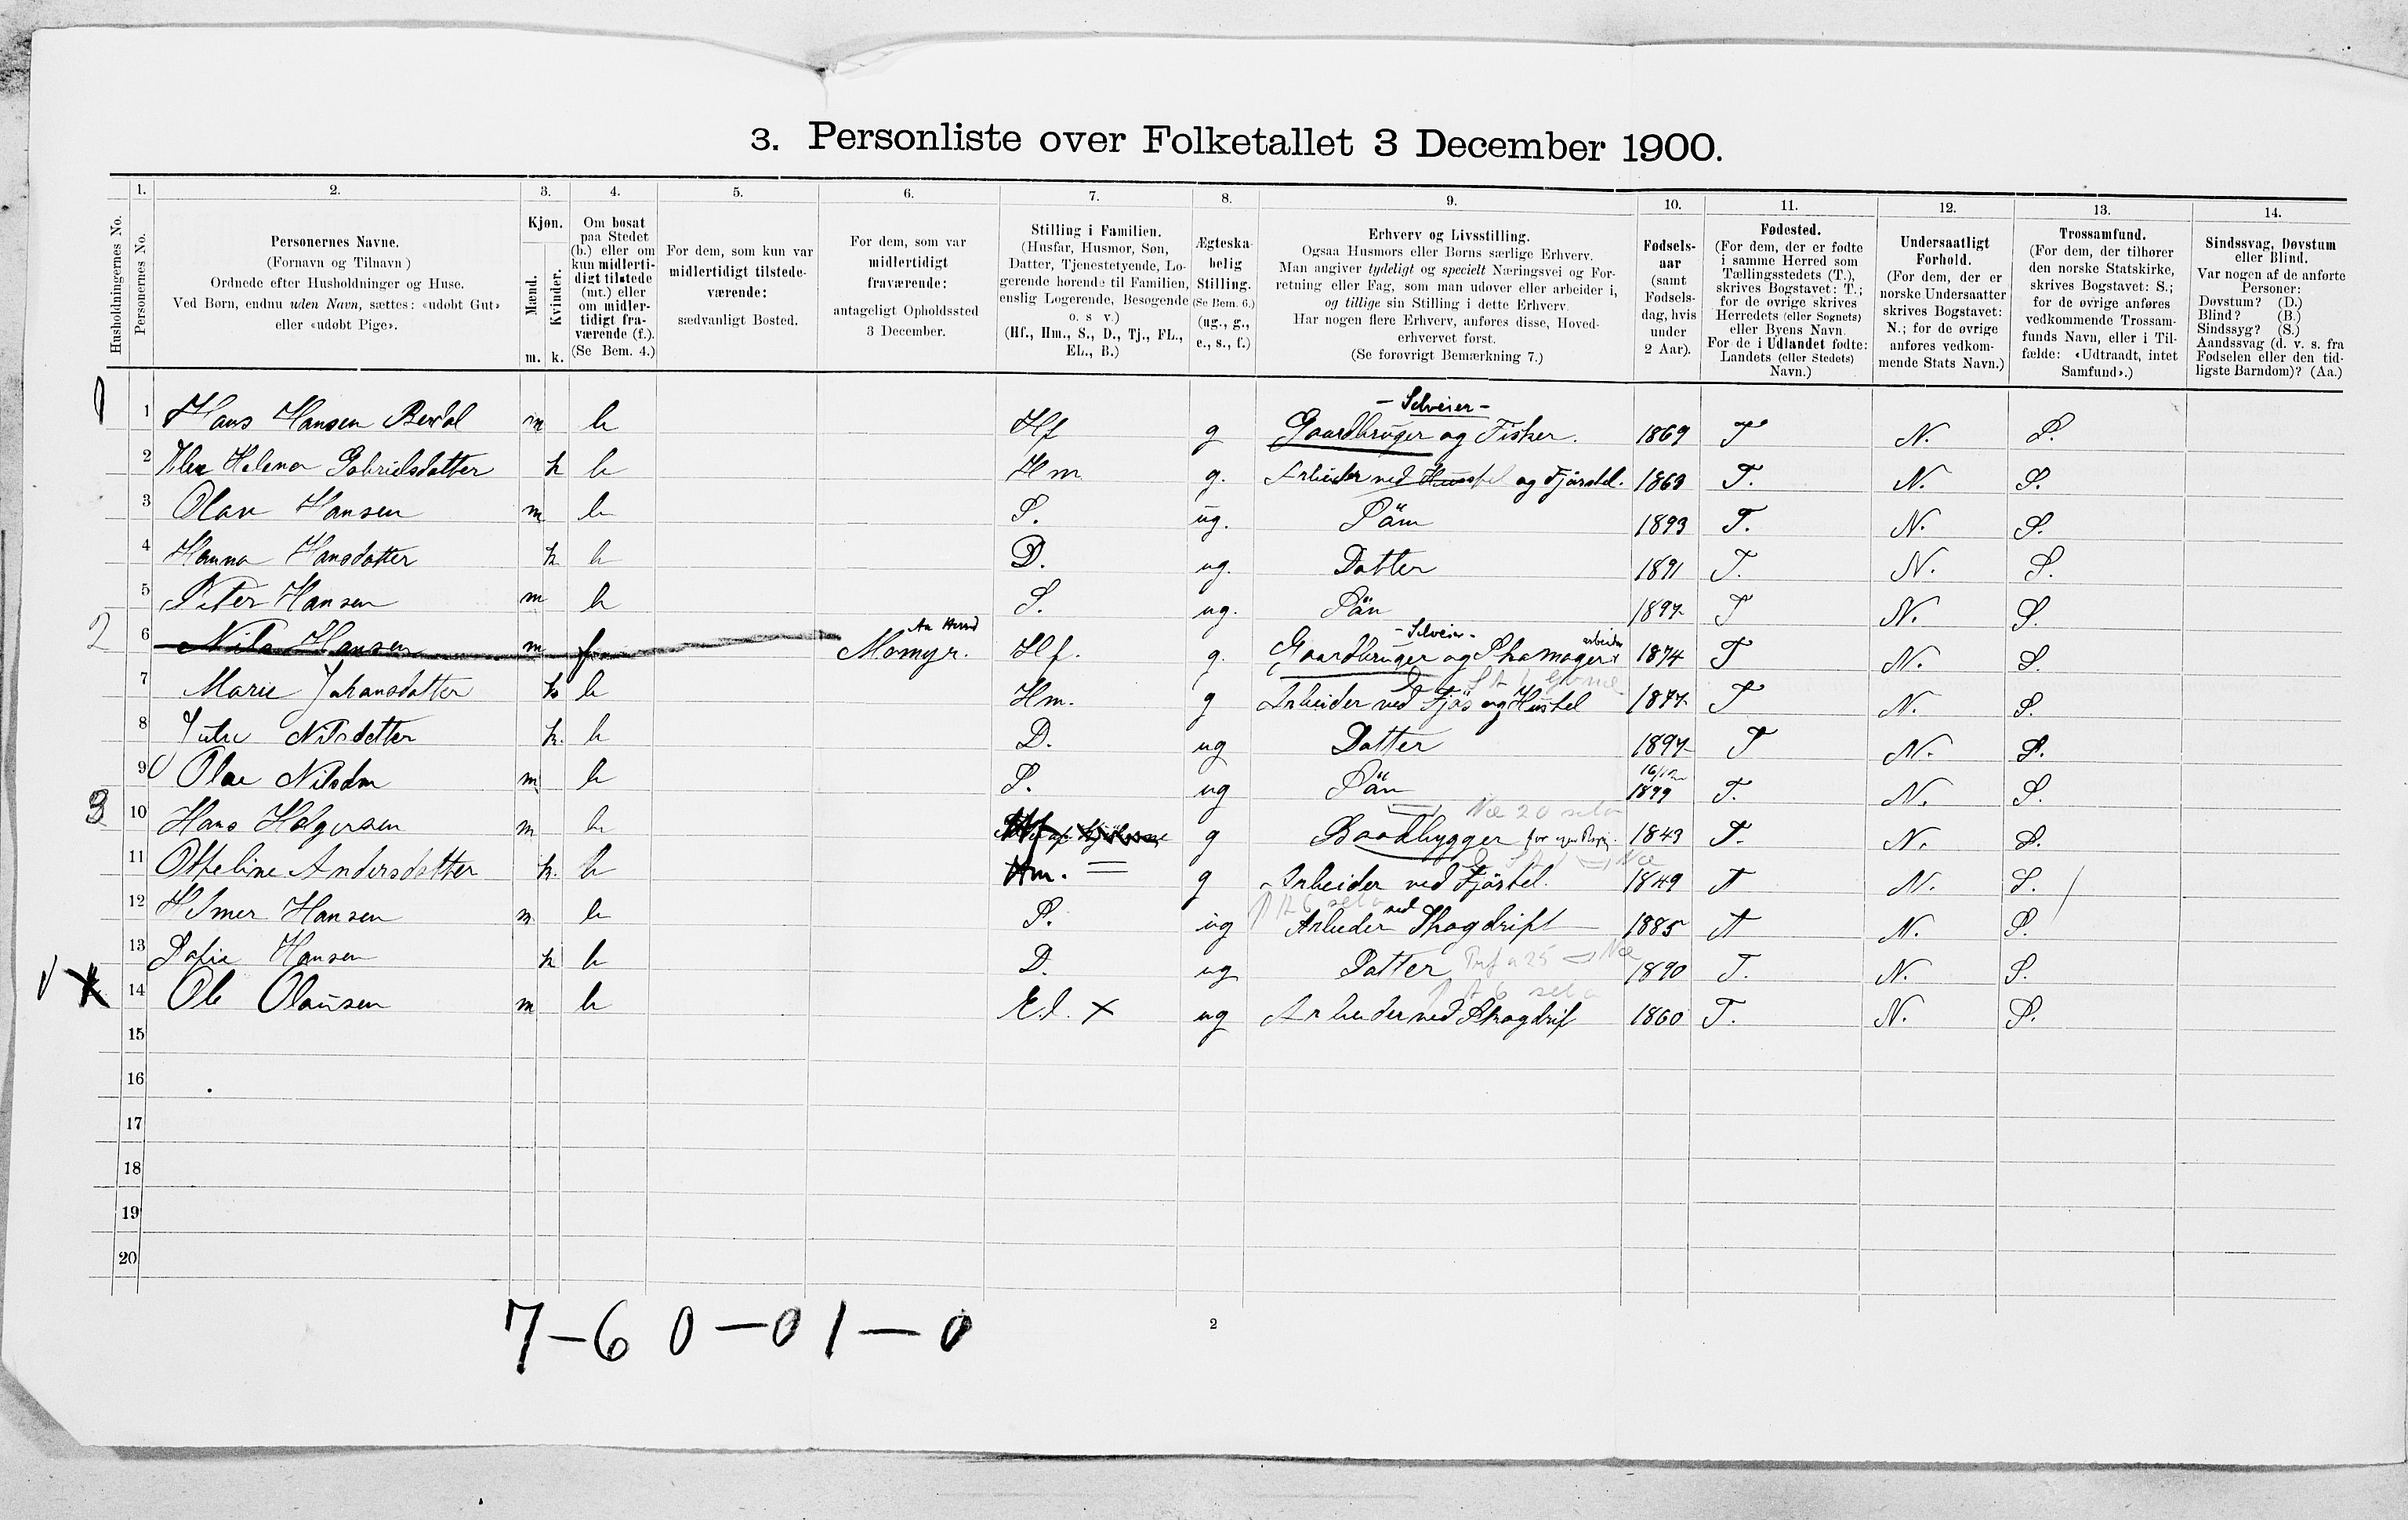 3. Personliste over Folketallet 3 December 1900.
1. 2. 3. 4. 5. 6. 7. 8. 9. 10. 11. 12. 13. 14.
Husholdningernes No.
Personernes No.
Personernes Navne.
(Fornavn og Tilnavn)
Ordnede efter Husholdninger og Huse.
Ved Børn, endnu uden Navn, sættes: «udøbt Gut»
eller «udøbt Pige».
Kjøn.
Mænd.
Kvinder.
m. k.
Om bosat
paa Stedet
(b.) eller om
kun midlerti-
digt tilstede
(mt.) eller
om midler-
tidigt fra-
værende (f.).
(Se Bem. 4.)
For dem, som kun var
midlertidigt tilstede-
værende:
sædvanligt Bosted.
For dem, som var
midlertidigt
fraværende:
antageligt Opholdssted
3 December.
Stilling i Familien.
(Husfar, Husmor, Søn,
Datter, Tjenestetyende, Lo-
gerende hørende til Familien,
enslig Logerende, Besøgende
o. s v.)
(Hf., Hm., S., D., Tj., FL.,
EL., B.)
Ægteska-
belig
Stilling.
(Se Bem. 6.)
(ug., g.,
e., s., f.)
Erhverv og Livsstilling.
Ogsaa Husmors eller Børns særlige Erhverv.
Man angiver tydeligt og specielt Næringsvei og For-
retning eller Fag, som man udøver eller arbeider i,
og tillige sin Stilling i dette Erhverv.
Har nogen flere Erhverv, anføres disse, Hoved-
erhvervet først.
(Se forøvrigt Bemærkning 7.)
Fødsels-
aar
(samt
Fødsels-
dag, hvis
under
2 Aar).
Fødested.
(For dem, der er fødte
i samme Herred som
Tællingsstedets (T.),
skrives Bogstavet: T.;
for de øvrige skrives
Herredets (eller Sognets)
eller Byens Navn.
For de i Udlandet fødte:
Landets (eller Stedets)
Navn.)
Undersaatligt
Forhold.
(For dem, der er
norske Undersaatter
skrives Bogstavet:
N.; for de øvrige
anføres vedkom-
mende Stats Navn.)
Trossamfund.
(For dem, der tilhører
den norske Statskirke,
skrives Bogstavet: S.;
for de øvrige anføres
vedkommende Trossam-
funds Navn, eller i Til-
fælde: «Udtraadt, intet
Samfund».)
Sindssvag, Døvstum
eller Blind.
Var nogen af de anførte
Personer:
Døvstum? (D.)
Blind? (B.)
Sindssyg? (S.)
Aandssvag (d. v. s. fra
Fødselen eller den tid-
ligste Barndom)? (Aa.)
- Selveier -
1 1 Hans Hansen m b Hf g Gaardbruger og Fisker. 1869 T N. S.
2 Helena Gabrielsdatter k b Hm g. Arbeider ved Husstel og Fjøsstel. 1869 T. N. S.
3 Olav Hansen m b S. ug. Søn 1893 T. N. S.
4 Hanna Hansdatter k b D. ug. Datter 1891 T. N. S.
5 Peter Hansen m b S. ug. Søn 1897 T N. S.
- Selveier - arbeider
2 6 Nils Hansen m f Momyr. Hf. g. Gaardbruger og 1874 T N. S.
7 Marie Johansdatter k b Hm. g Arbeider ved Fjøs og Hustel 1877 T N. S.
8 Nilsdatter k. b D. ug Datter 1897 T N. S.
9 Olae m b S. ug Søn 16/12 1899 T. N. S.
3 10 Hans Holgersen m b g Baadbygger 1843 T. N. S.
11 Otteline Andersdatter k. b Hm. g Arbeider ved Fjøstel. 1849 T N. S.
12 Hilmer Hansen m b S. ug Arbeider ved Skogdrift 1885 T N. S.
13 Hansen k b D. ug Datter 1890 T. N. S.
X 14 Ole Olausen m b El. X ug Arbeider ved Skogdrif 1860 T. N. S.
15
16
17
18
19
20
7-6 0-0 1-0
2